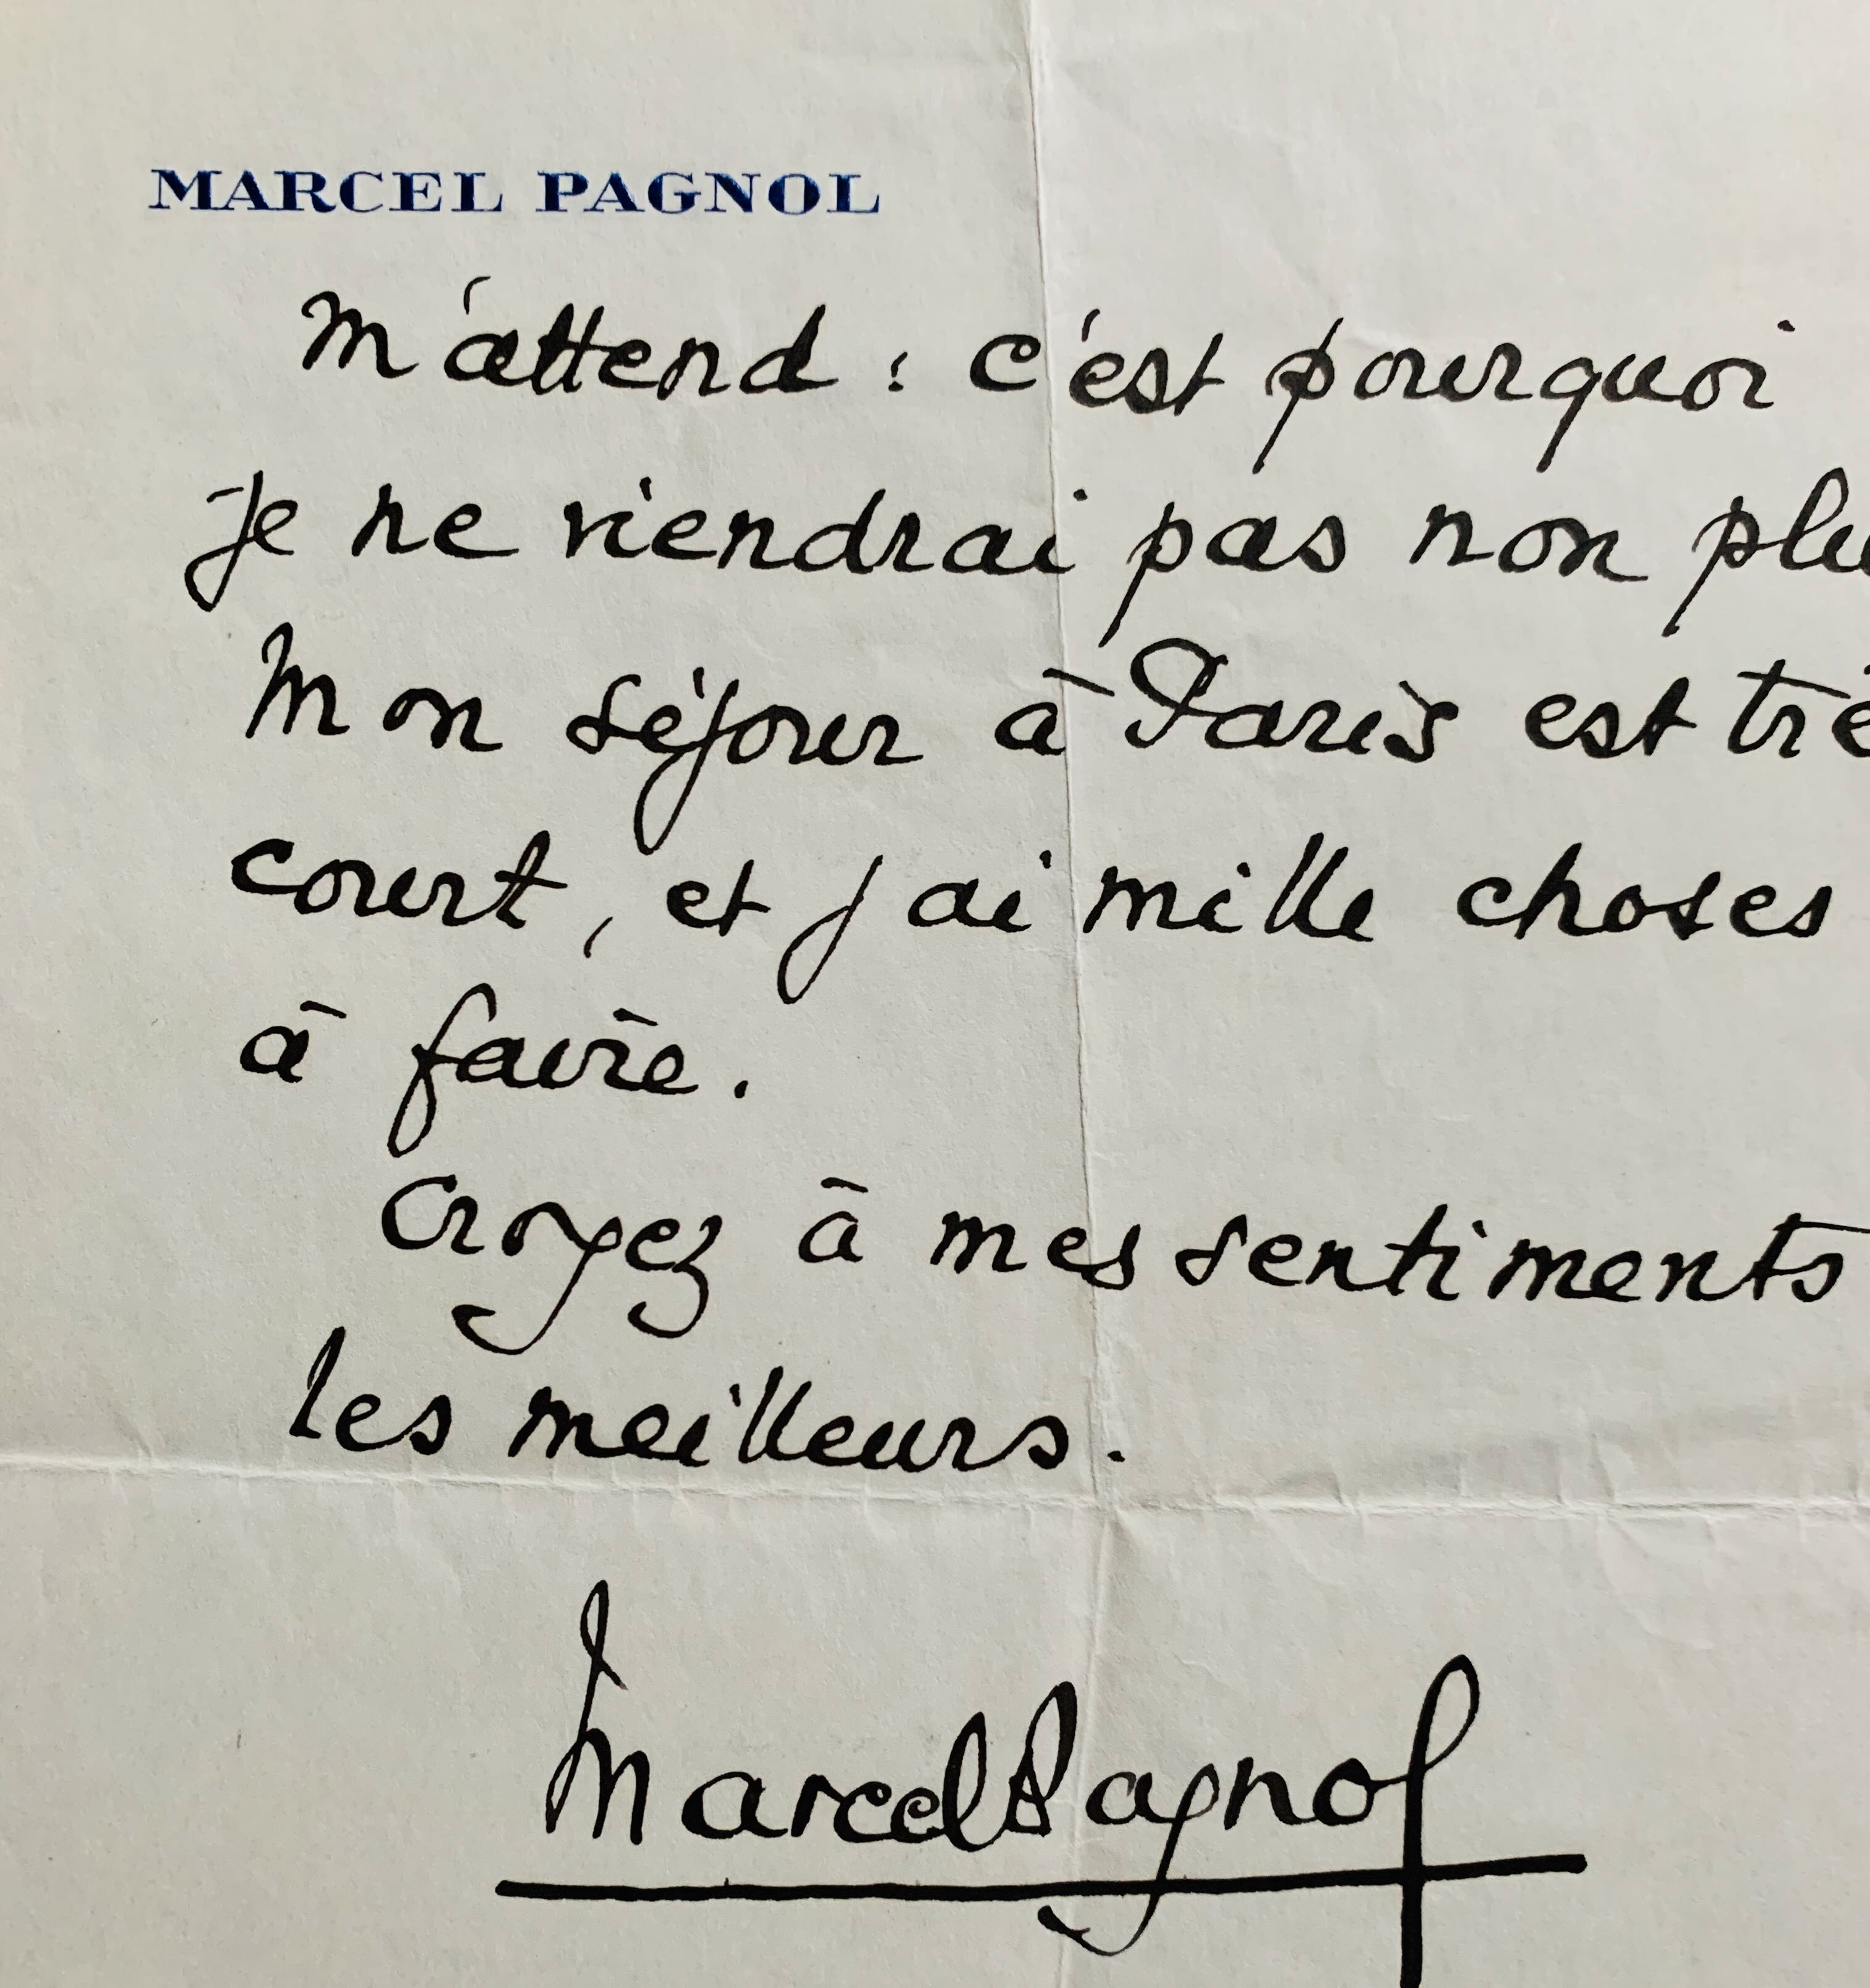 MARCEL PAGNOL
m'attend : c'est pourquoi
je ne viendrai pas non plu
Mon séjour à Paris est trè
court, et j'ai mille choses
à faire.
Croyez à mes sentiments
les meilleurs.
Marcel Pagnol